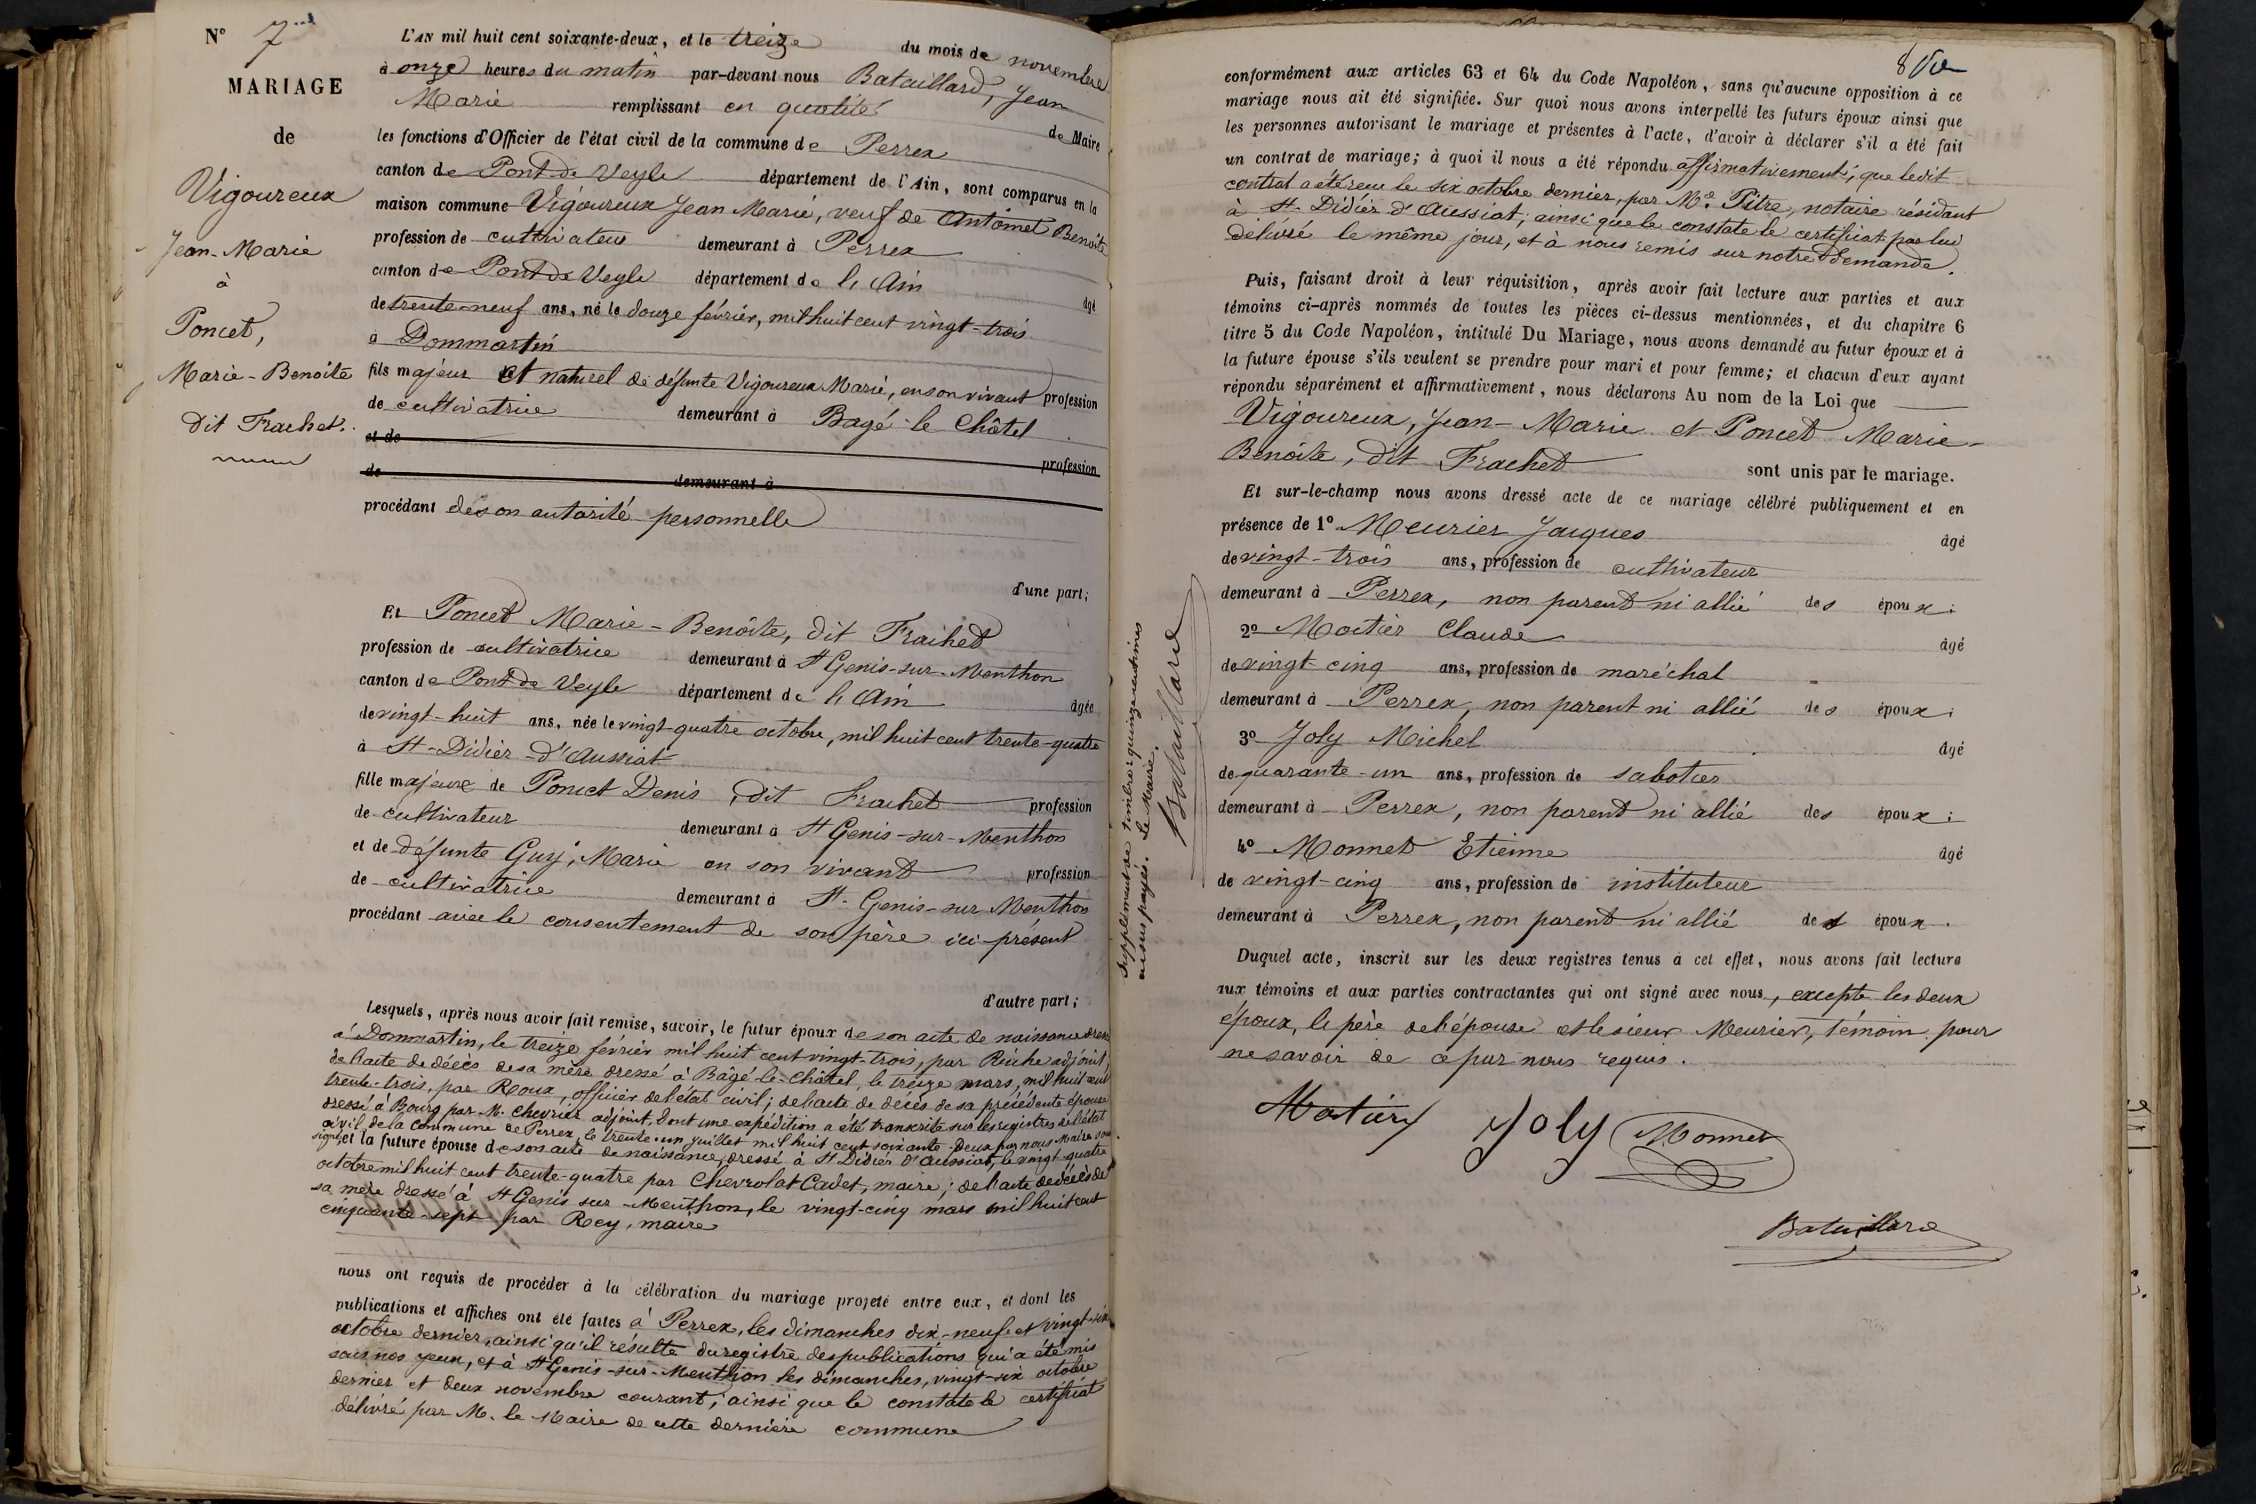 N° 7
MARIAGE
de
Vigoureux
Jean-Marie
à
Poncet,
Marie-Benoite
dit Frachet.
L'AN mil huit cent soixante-deux, et le treize du mois de novembre
à onze heures du matin par-devant nous Bataillard, Jean
Marie remplissant en qualité de Maire
les fonctions d'Officier de l'état civil de la commune de Perrex
canton de Pont de Veyle département de l'Ain, sont comparus en la
maison commune Vigoureux Jean Marie, veuf de Antoinet Benoite
profession de cultivateur demeurant à Perrex
canton de Pont de Veyle département de l'Ain âgé
de trente-neuf ans, né le douze février, mil huit cent vingt-trois
à Dommartin
fils majeur et naturel de défunte Vigoureux Marie, en son vivant profession
de cultivatrice demeurant à Bagé-le Châtel
et de profession
de demeurant à
procédant de son autorité personnelle
d'une part;
Et Poncet Marie-Benoite, dit Fraihet
profession de cultivatrice demeurant à St Genis-sur-Menthon
canton de Pont de Veyle département de l'Ain âgée
de vingt-huit ans, née le vingt-quatre octobre, mil huit cent trente-quatre
à St-Didier-d'Aussiat
fille majeure de Poncet Denis, dit Frachet profession
de cultivateur demeurant à St Genis-sur-Menthon
et de défunte Guy, Marie en son vivant profession
de cultivatrice demeurant à St-Genis-sur Menthon
procédant avec le consentement de son père ici présent
d'autre part;
Lesquels, après nous avoir fait remise, savoir, le futur époux de son acte de naissance dressé
à Dommartin, le treize février mil huit cent vingt-trois, par Riche adjoint;
de l'acte de décès de sa mère dressé à Bâgé-le-Châtel, le treize mars, mil huit cent
trente-trois, par Roux, officier de l'état civil; de l'acte de décès de sa précédente épouse
dressé à Bourg par M. Chevrier adjoint, dont une expédition a été transcrite sur les registres de l'état
civil de la commune de Perrex, le trente-un juillet mil huit cent soixante-deux par nous Maire sous
signé, et la future épouse de son acte de naissance, dressé à St Didier d'Aussiat, le vingt-quatre
octobre mil huit cent trente-quatre par Chevrolat Cadet, maire; de l'acte de décès de
sa mère dressé à St Genis sur-Menthon, le vingt-cinq mars mil huit cent
cinquante-sept par Rey, maire
nous ont requis de procéder à la célébration du mariage projeté entre eux, et dont les
publications et affiches ont été faites à Perrex, les dimanches dix-neuf et vingt-six
octobre dernier, ainsi qu'il résulte du registre des publications qui a été mis
sous nos yeux, et à St Genis-sur-Menthon les dimanches, vingt-six octobre
dernier et deux novembre courant; ainsi que le constate le certificat
délivré par M. le Maire de cette dernière commune
Supplément de timbre: quinze centimes
au sus payés. Le Maire.
Bataillard
8
conformément aux articles 63 et 64 du Code Napoléon, sans qu'aucune opposition à ce
mariage nous ait été signifiée. Sur quoi nous avons interpellé les futurs époux ainsi que
les personnes autorisant le mariage et présentes à l'acte, d'avoir à déclarer s'il a été fait
un contrat de mariage; à quoi il nous a été répondu affirmativement; que ledit
contrat a été reçu le six octobre dernier, par Me. Pitre, notaire résidant
à St. Didier d'Aussiat; ainsi que le constate le certificat par lui
délivré le même jour, et à nous remis sur notre demande.
Puis, faisant droit à leur réquisition, après avoir fait lecture aux parties et aux
témoins ci-après nommés de toutes les pièces ci-dessus mentionnées, et du chapitre 6
titre 5 du Code Napoléon, intitulé Du Mariage, nous avons demandé au futur époux et à
la future épouse s'ils veulent se prendre pour mari et pour femme; et chacun d'eux ayant
répondu séparément et affirmativement, nous déclarons Au nom de la Loi que
Vigoureux, Jean-Marie et Poncet Marie-
Benoite, dit Frachet sont unis par le mariage.
Et sur-le-champ nous avons dressé acte de ce mariage célébré publiquement et en
présence de 1° Meurier Jacques âgé
de vingt-trois ans, profession de cultivateur
demeurant à Perrex, non parent ni allié des époux;
2° Moitier Claude âgé
de vingt-cinq ans, profession de maréchal
demeurant à Perrex, non parent ni allié des époux;
3° Joly Michel âgé
de quarante-un ans, profession de sabotier
demeurant à Perrex, non parent ni allié des époux;
4° Monnet Etienne âgé
de vingt-cinq ans, profession de instituteur
demeurant à Perrex, non parent ni allié des époux.
Duquel acte, inscrit sur les deux registres tenus à cet effet, nous avons fait lecture
aux témoins et aux parties contractantes qui ont signé avec nous, excepté les deux
époux, le père de l'épouse et le sieur Meurier, témoin pour
ne savoir de ce par nous requis.
Moitier Joly Monnet
Bataillard